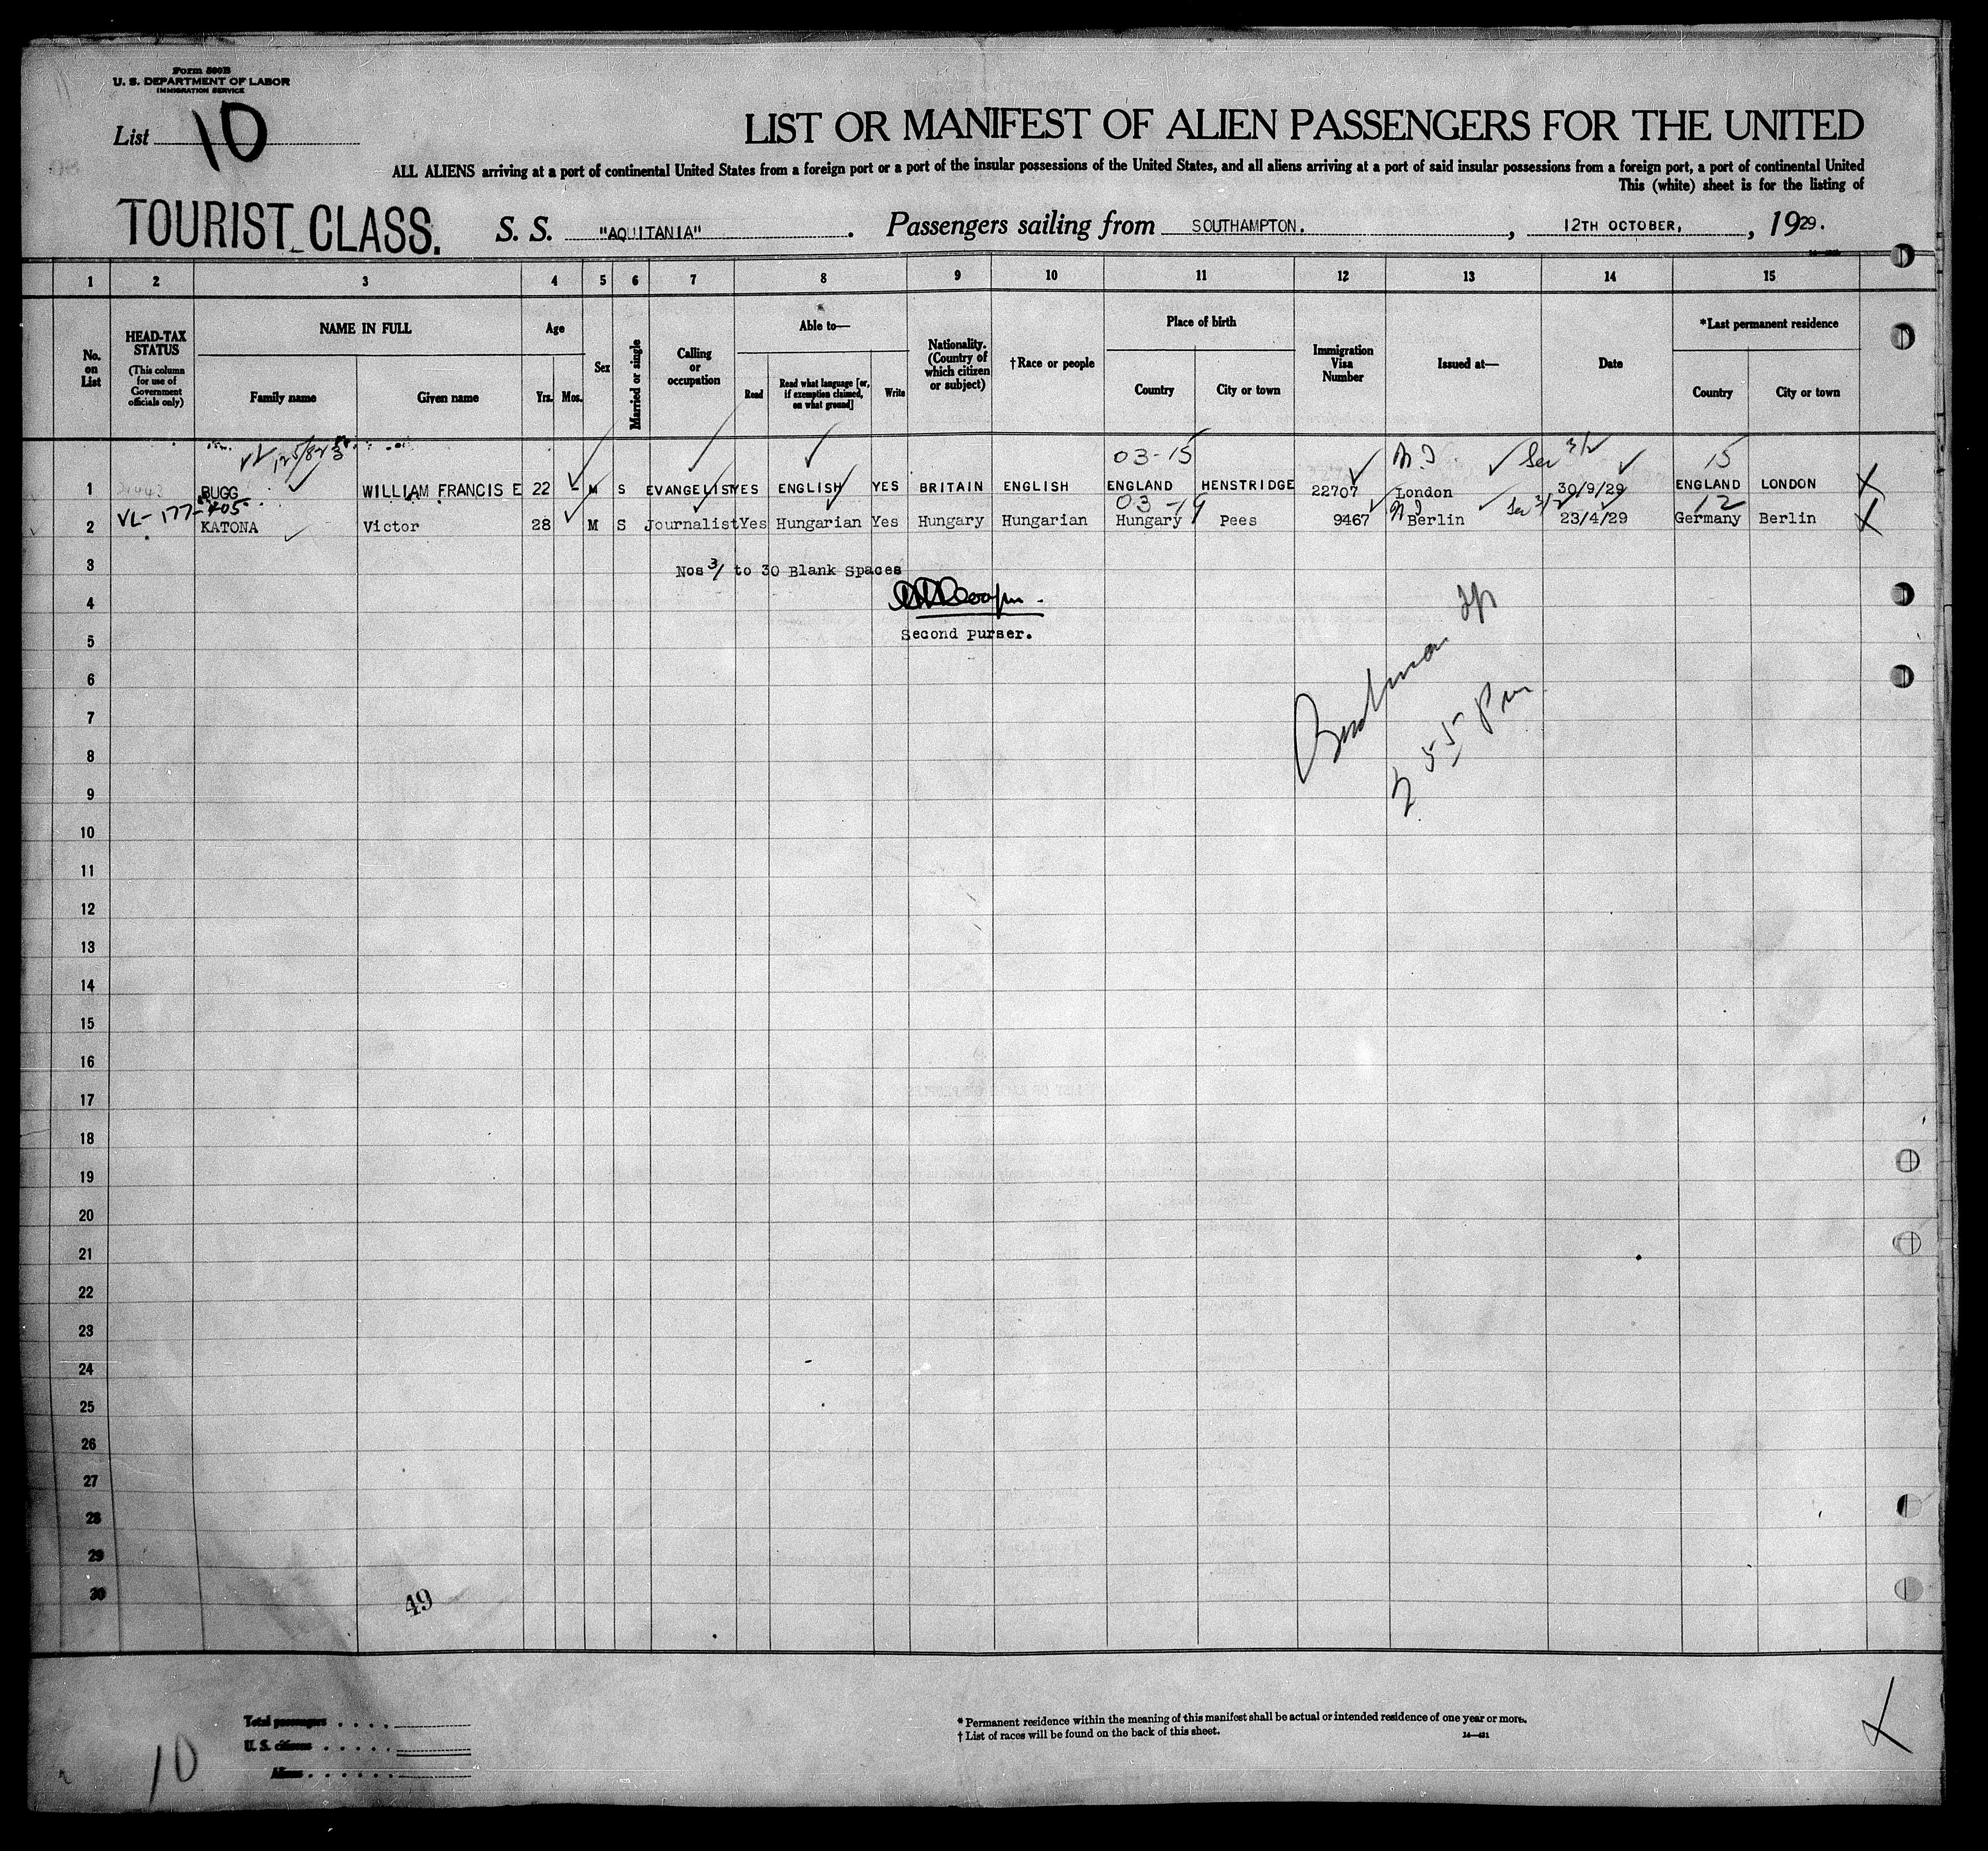 Form 500B
U. S. DEPARTMENT OF LABOR
IMMIGRATION SERVICE
List 10
LIST OR MANIFEST OF ALIEN PASSENGERS FOR THE UNITED
ALL ALIENS arriving at a port of continental United States from a foreign port or a port of the insular possessions of the United States, and all aliens arriving at a port of said insular possessions from a foreign port, a port of continental United
This (white) sheet is for the listing of
TOURIST CLASS. S. S. "AQUITANIA" . Passengers sailing from SOUTHAMPTON. , 12TH OCTOBER, , 1929.
1 2 3 4 5 6 7 8 9 10 11 12 13 14 15
No. on List
HEAD-TAX STATUS
(This column for use of Government officials only)
NAME IN FULL
Family name Given name
Age
Yrs. Mos.
Sex
Married or single
Calling or occupation
Able to—
Read Read what language [or, if exemption claimed, on what ground] Write
Nationality. (Country of which citizen or subject)
†Race or people
Place of birth
Country City or town
Immigration Visa Number
Issued at—
Date
*Last permanent residence
Country City or town
03-15 15
1 BUGG WILLIAM FRANCIS E 22 - M S EVANGELIST YES ENGLISH YES BRITAIN ENGLISH ENGLAND HENSTRIDGE 22707 London 30/9/29 ENGLAND LONDON
VL-177-405 03-19 12
2 KATONA Victor 28 M S Journalist Yes Hungarian Yes Hungary Hungarian Hungary Pecs 9467 Berlin 23/4/29 Germany Berlin
3 Nos 3/ to 30 Blank Spaces
4
5 Second purser.
6
7
8
2 55 Pm
9
10
11
12
13
14
15
16
17
18
19
20
21
22
23
24
25
26
27
28
29
30
49
Total passengers
U. S. citizens
Aliens
10
* Permanent residence within the meaning of this manifest shall be actual or intended residence of one year or more.
† List of races will be found on the back of this sheet.
14—421